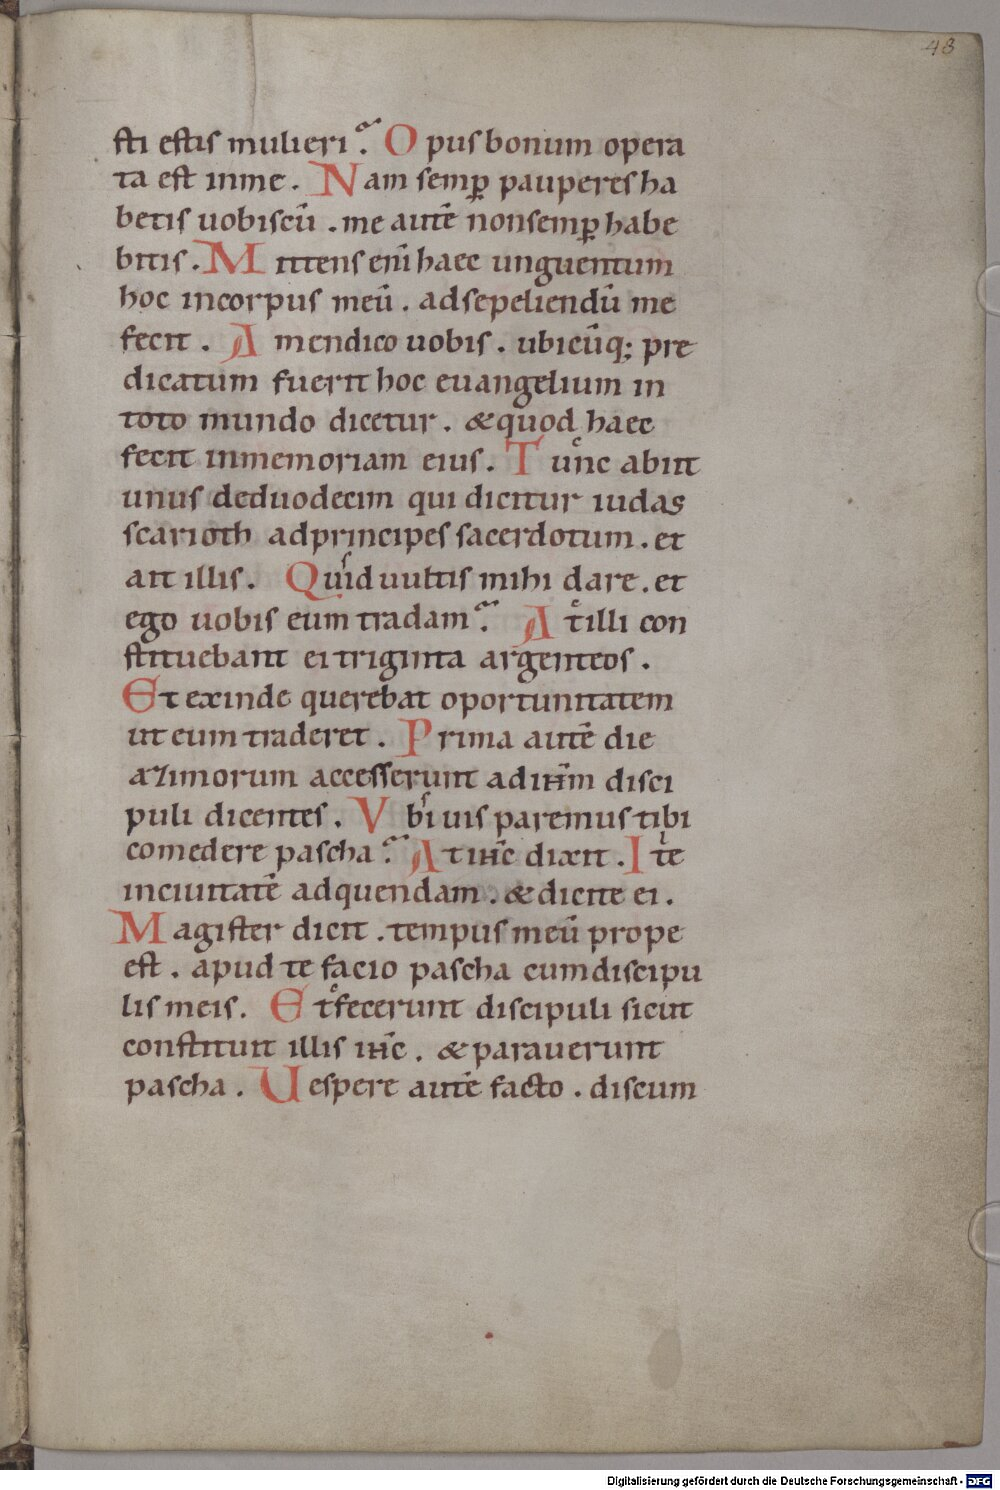 48
sti estis mulieri? Opus bonum opera
ta est inme. Nam semp̱ pauperes ha
betis uobiscū. me autē nonsemp̱ habe
bitis. Mittens eni̅ haec unguentum
hoc incorpus meū. adsepeliendū me
fecit. Amendico uobis. ubicūq; pre
dicatum fuerit hoc euangelium in
toto mundo dicetur. & quod haec
fecit inmemoriam eius. Tunc abiit
unus deduodecim qui dicitur iudas
scarioth adprincipes sacerdotum. et
ait illis. Quid uultis mihi dare. et
ego uobis eum tradam? At illi con
stituebant ei triginta argenteos.
Et exinde querebat oportunitatem
ut eum traderet. Prima autē die
azimorum accesserunt adih̅m disci
puli dicentes. Vbi uis paremus tibi
comedere pascha? At ih̅c dixit. Ite
inciuitatē adquendam. & dicite ei.
Magister dicit. tempus meū prope
est. apud te facio pascha cumdiscipu
lis meis. Et fecerunt discipuli sicut
constituit illis ih̅c. & parauerunt
pascha. Uespere autē facto. discum
Digitalisierung gefördert durch die Deutsche Forschungsgemeinschaft - DFG